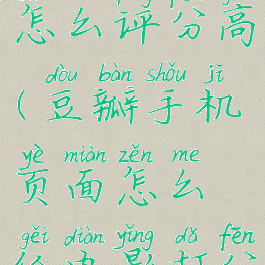 怎么评分高
dòu bàn shǒu jī
(豆瓣手机
yè miàn zěn me
页面怎么
gěi diàn yǐng dǎ fēn
给电影打分